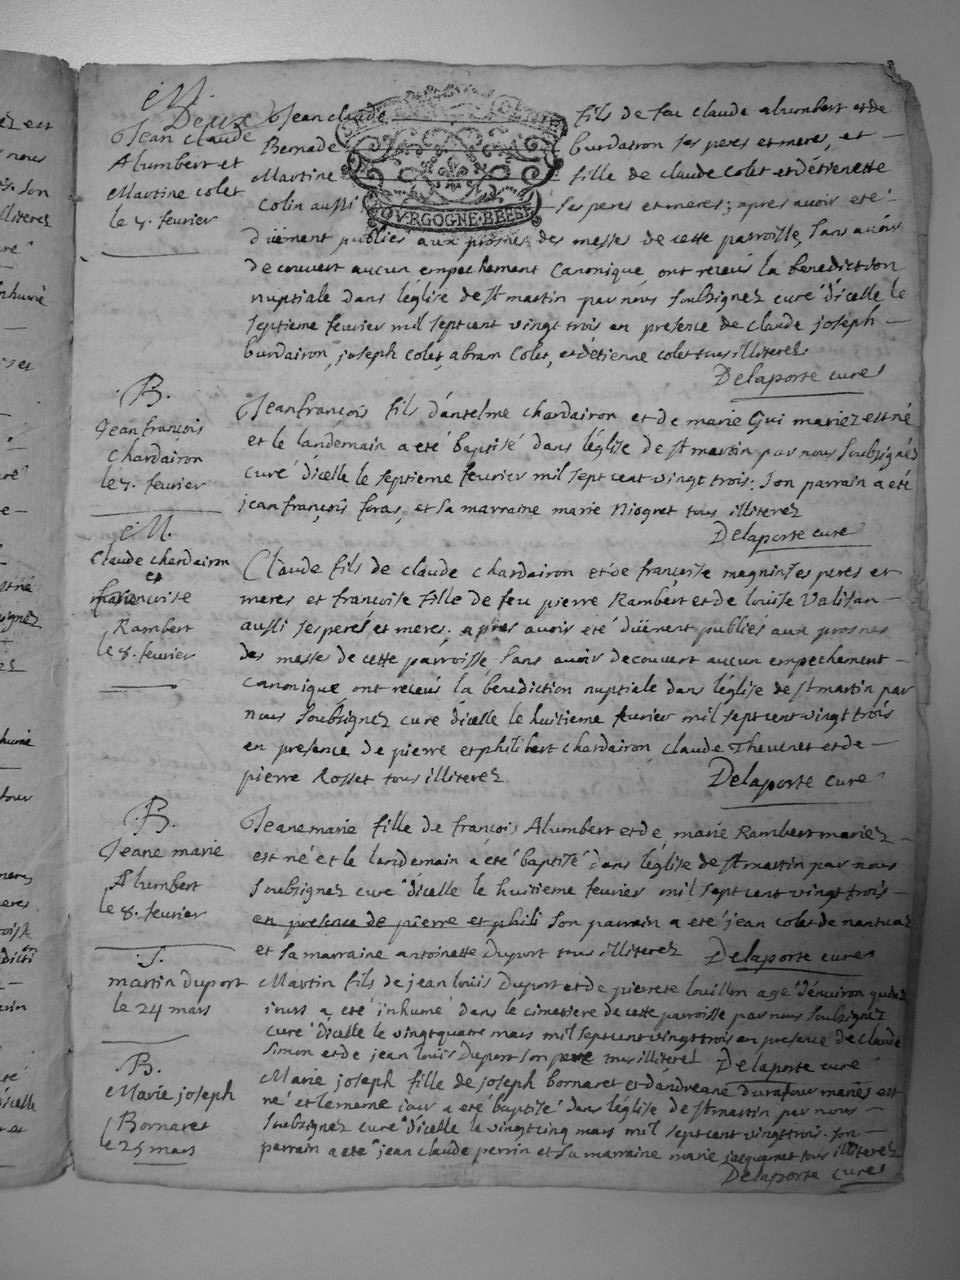 M.
Deux
Jean claude
Alumbert et
Martine colet
le 7. fevrier
Jean claude fils de feu claude alumbert et de
Bernade burdairon ses peres et meres, et
Martine fille de claude Colet et détienette
Colin aussi ses peres et meres; apres avoir eté
BOVRGOGNE·BRESSE
düement publiés aux prosnes des messes de cette parroisse, sans avoir
decouvert aucun empechement Canonique ont receüs la benediction
nuptiale dans léglise de st martin par nous soubsignez curé dicelle le
septieme fevrier mil sept cent vingt trois en presence de claude joseph
burdairon, joseph Colet, abram Colet, et détienne colet tous illiterez
Delaporte curé
B.
Jean françois
Chardairon
le 7. fevrier
Jean françois fils dantelme chardairon et de marie Gui mariez est né
et le landemain a eté baptisé dans léglise de st martin par nous soubsignés
curé dicelle le septieme fevrier mil sept cent vingt trois: son parrain a eté
jean françois foras, et sa marraine marie Niogret tous illiterez
Delaporte curé
M.
Claude chardairon
et
francoise
Rambert
le 8. fevrier
Claude fils de claude chardairon et de françoise magnin ses peres et
meres et françoise fille de feu pierre Rambert et de louise Valisan
aussi ses peres et meres. apres avoir eté düement publiés aux prosnes
des messes de cette parroisse sans avoir decouvert aucun empechement
canonique ont receüs la benediction nuptiale dans léglise de st martin par
nous soubsignez curé dicelle le huitieme fevrier mil sept cent vingt trois
en presence de pierre et philibert chardairon, claude Thevenet et de
pierre Rosset tous illiterez
Delaporte curé
B.
Jeane marie
Alumbert
le 8. fevrier
Jeane marie fille de françois Alumbert et de marie Rambert mariez
est né et le landemain a eté baptisé dans léglise de st martin par nous
soubsignez curé dicelle le huitieme fevrier mil sept cent vingt trois
en presence de pierre et phili son parrain a eté jean colet de nantua
et sa marraine antoinette Duport tous illiterez
Delaporte curé
S.
martin duport
le 24 mars
Martin fils de jean loüis Duport et de pierrete louillon agé denviron quinze
jours a eté inhumé dans le cimetiere de cette parroisse par nous soubsignez
curé dicelle le vingt quatre mars mil sept cent vingt trois en presence de claude
simon et de jean loüis Duport son pere tous illiterez
Delaporte curé
B.
Marie joseph
Bornaret
le 25 mars
Marie joseph fille de joseph bornaret et dandreane durafour mariés est
né et le meme jour a eté baptisé dans léglise de st martin par nous
soubsignez curé dicelle le vingt cinq mars mil sept cent vingt trois. son
parrain a eté jean claude perrin et sa marraine marie jacquemet tous illiterez
Delaporte curé